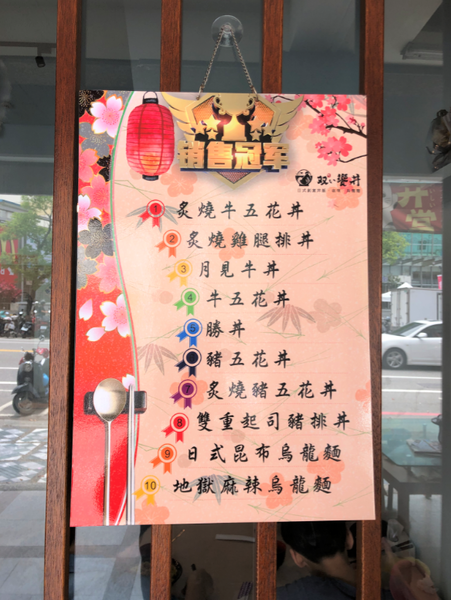 銷售冠軍
1 炙燒牛五花丼
2 炙燒雞腿排丼
3 月見牛丼
4 牛五花丼
5 勝丼
6 豬五花丼
7 炙燒豬五花丼
8 雙重起司豬排丼
9 日式昆布烏龍麵
10 地獄麻辣烏龍麵